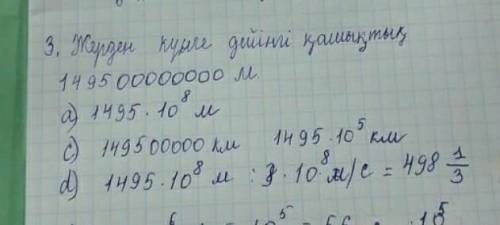 3. Жерден күнге дейінгі қашықтық
149500000000 м
а) 1495 · 10⁸ м
c) 149500000 км 1495 · 10⁵ км
d) 1495 · 10⁸ м : 3 · 10⁸ м/с = 498 1/3